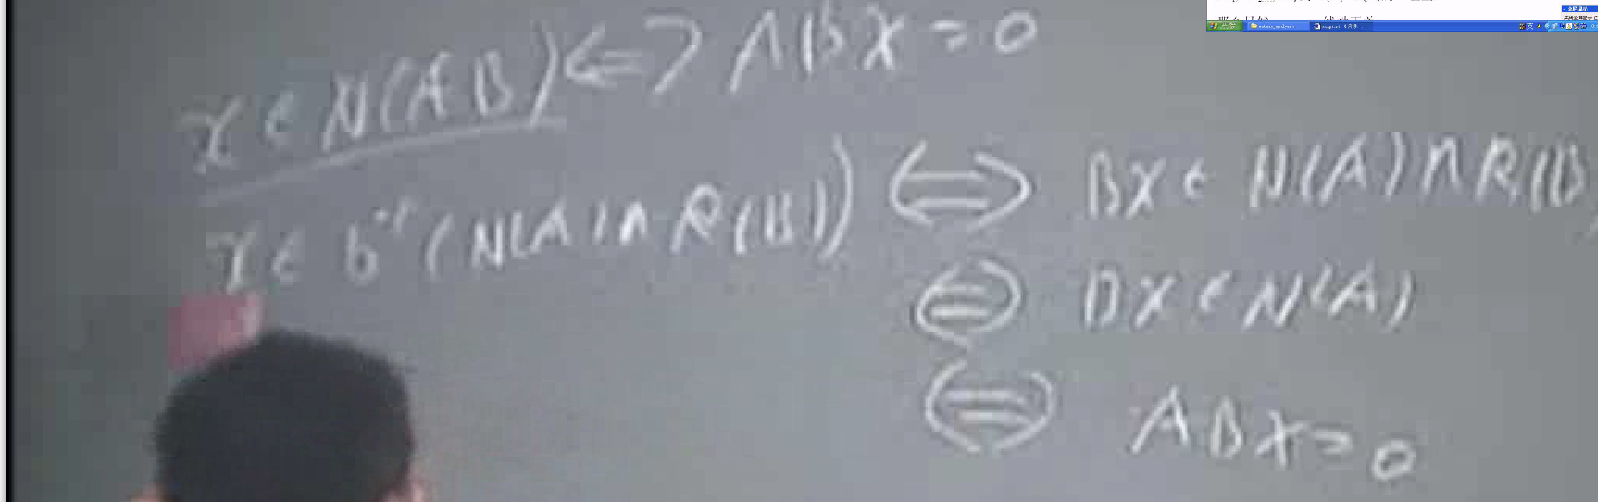 x ∈ N(AB) <=> ABX = 0
x ∈ b⁻¹(N(A)∩R(B)) <=> BX ∈ N(A)∩R(B)
<=> BX ∈ N(A)
<=> ABX = 0